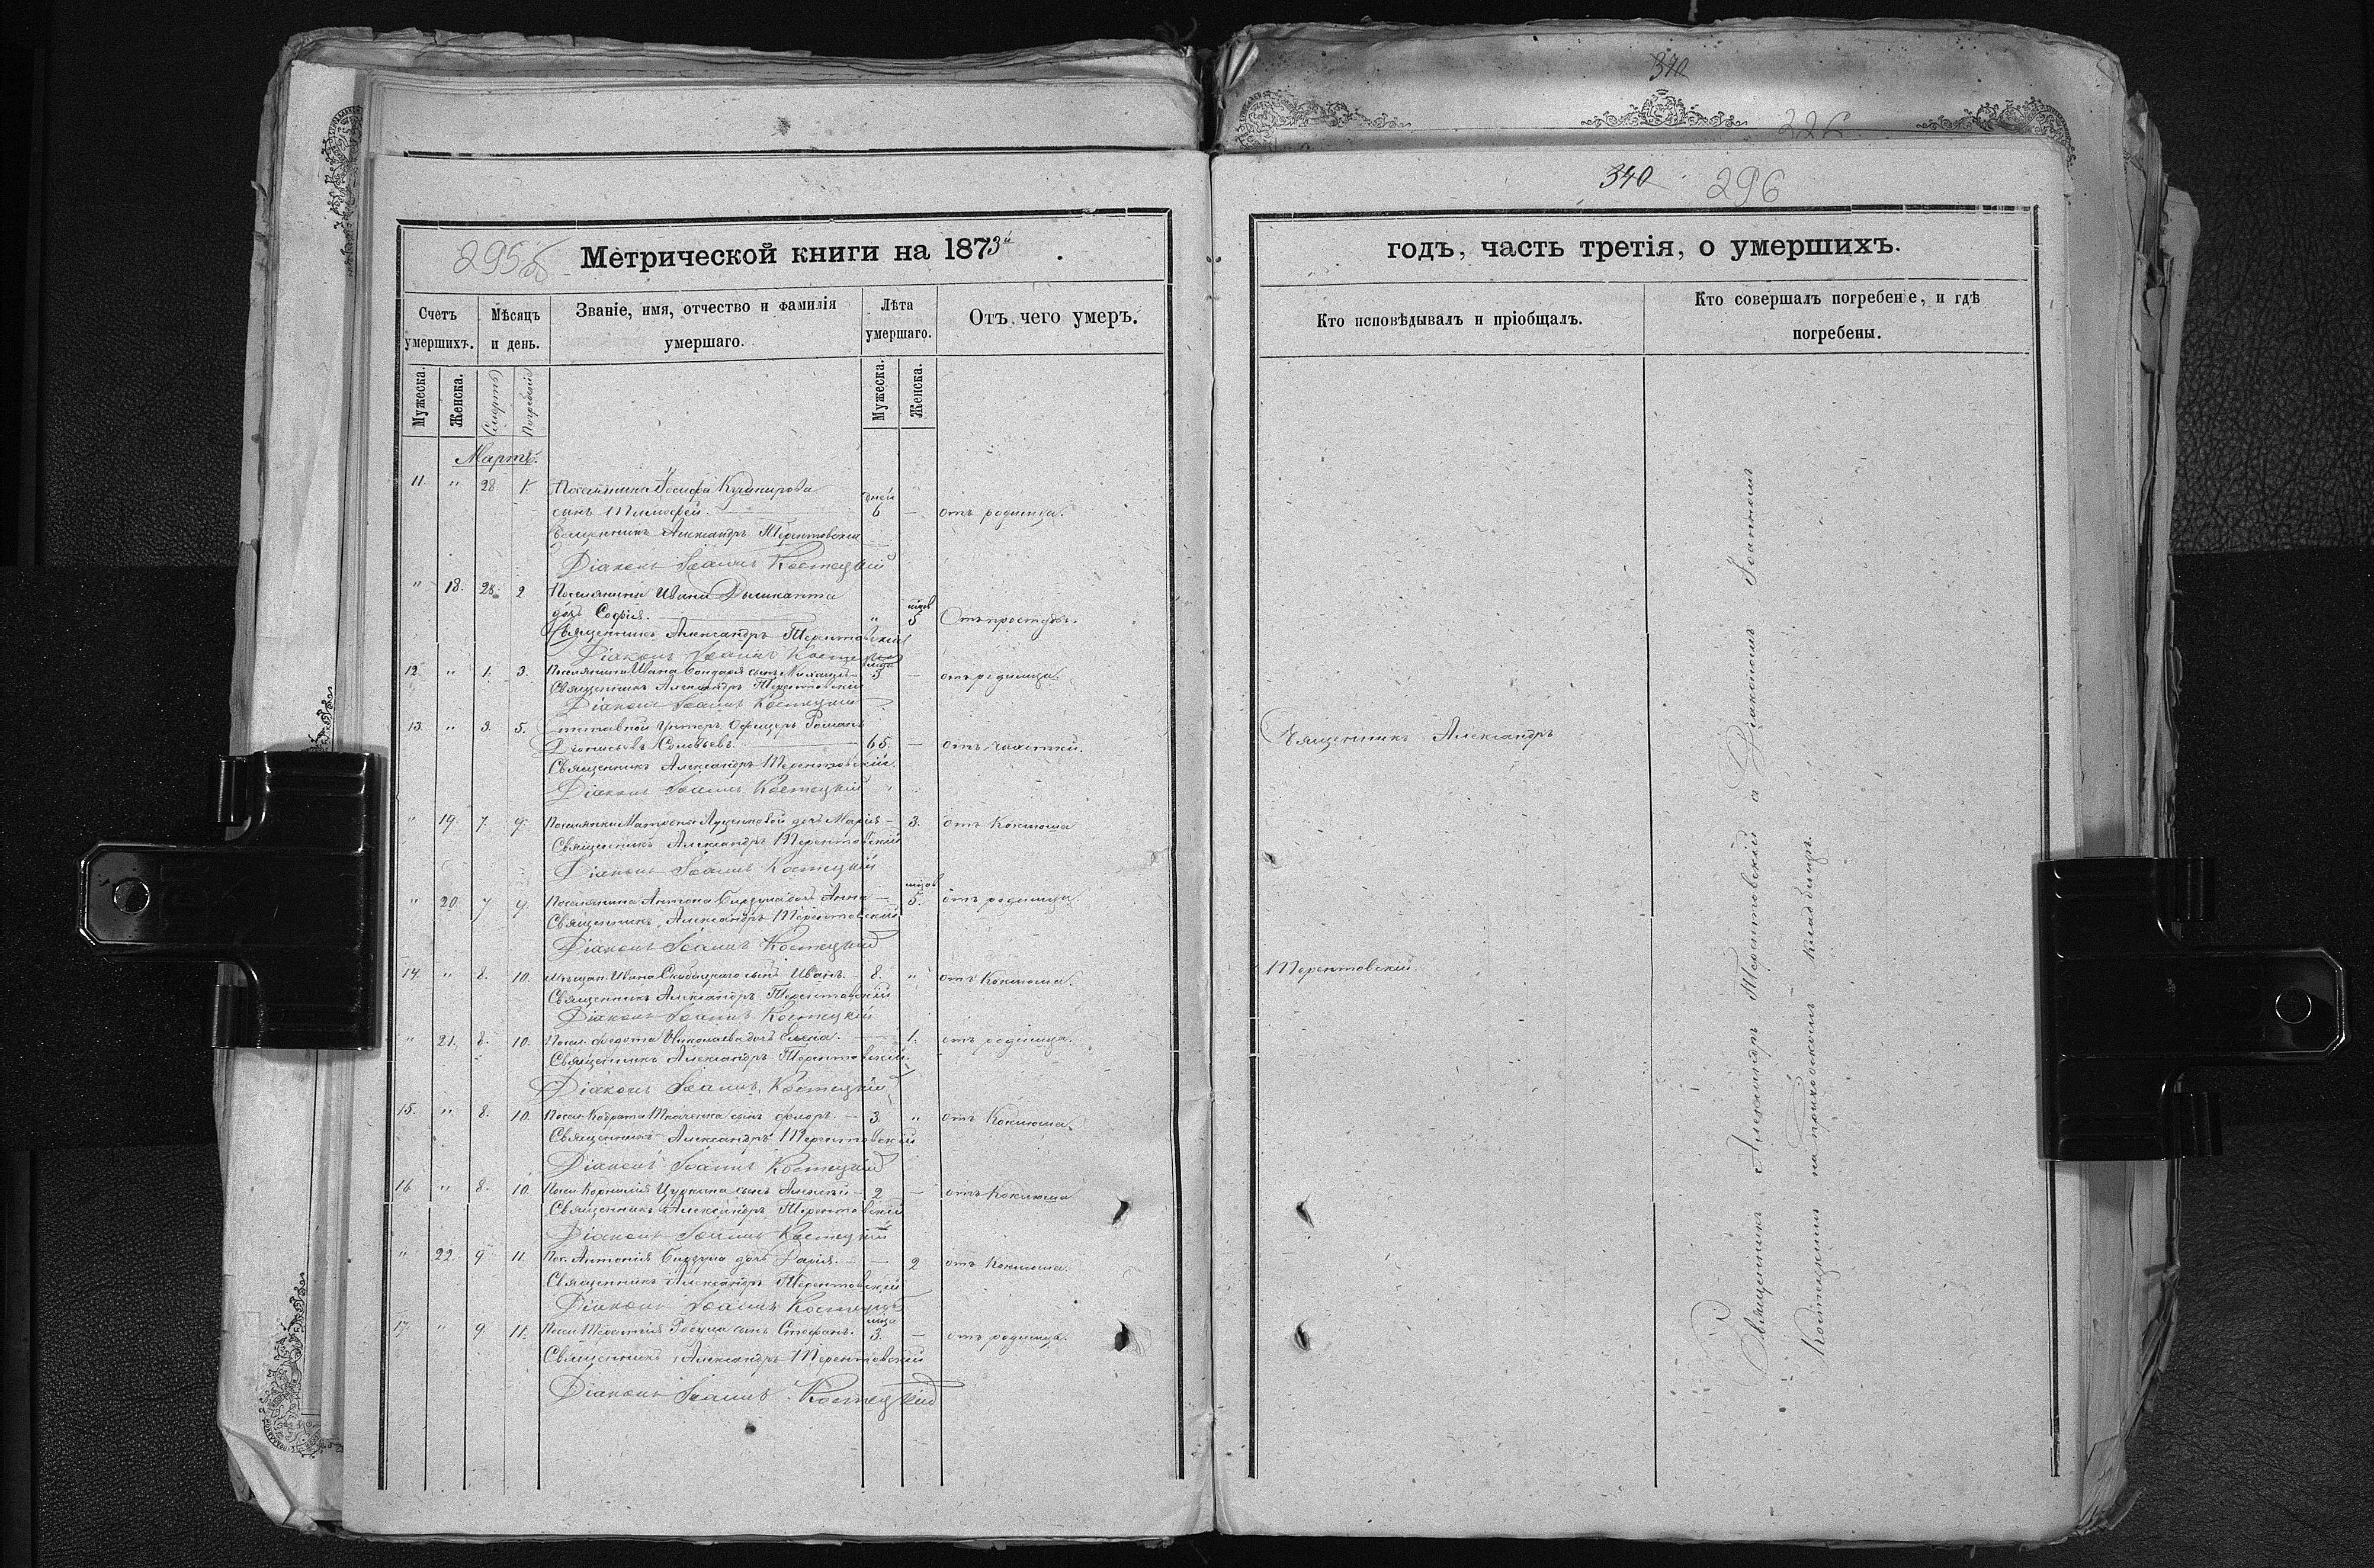 340
226
340 296
295 об
Метрической книги на 1873й
годъ, часть третія, о умершихъ.
Счетъ умершихъ.
Мѣсяцъ и день.
Званіе, имя, отчество и фамилія умершаго.
Лѣта умершаго.
Отъ чего умеръ.
Кто исповѣдывалъ и пріобщалъ.
Кто совершалъ погребеніе, и гдѣ погребены.
Мужеска.
Женска.
Смерть
Погребеніе
Мужеска.
Женска.
Мартъ.
11. " 28 1. Поселянина Іосифа Кушнирова
сынъ Тимофей. дней 6 — отъ родимца.
Священникъ Александръ Терентовскій
Діаконъ Іоаннъ Костецкій
" 18. 28. 2 Поселянина Ивана
дочь Софія. " 5 Отъ простуды.
Священникъ Александръ Терентовскій
Діаконъ Іоаннъ Костецкій
12. " 1. 3. Поселянина Ивана Бондаря сынъ Михаилъ — 3 — отъ родимца.
Священникъ Александръ Терентовскій
Діаконъ Іоаннъ Костецкій
13. " 3. 5. Унтеръ Офицеръ Романъ
Діонисьевъ 65. — отъ чахотки.
Священникъ Александръ Терентовскій.
Діаконъ Іоаннъ Костецкій
" 19. 7. 9. Поселянки Матроны Луценковой дочь Марія — 3. отъ Коклюша
Священникъ Александръ Терентовскій
Діаконъ Іоаннъ Костецкій
" 20. 7 9. Поселянина Антона дочь Анна — 5. отъ родимца.
Священникъ Александръ Терентовскій
Діаконъ Іоаннъ Костецкій
14. " 8. 10. Мѣщан. Ивана сынъ Иванъ. — 8. " отъ Коклюша.
Священникъ Александръ Терентовскій
Діаконъ Іоаннъ Костецкій
" 21. 8. 10. Посел. Федота дочь Елена. — 1. отъ родимца.
Священникъ Александръ Терентовскій.
Діаконъ Іоаннъ Костецкій
15. " 8. 10. Посел. Кодрата Ткаченка сынъ Флоръ. — 3. " отъ Коклюша.
Священникъ Александръ Терентовскій
Діаконъ Іоаннъ Костецкій
16 " 8. 10. Посел. Корнилія Цуркана сынъ Алексѣй — 2 — отъ Коклюша
Священникъ Александръ Терентовскій
Діаконъ Іоаннъ Костецкій
" 22. 9 11. Пос. Антонія дочь Дарія. — — 2 отъ Коклюша.
Священникъ Александръ Терентовскій
Діаконъ Іоаннъ Костецкій
17. " 9. 11. Посел. сынъ Стефанъ. 3. — отъ родимца.
Священникъ Александръ Терентовскій
Діаконъ Іоаннъ Костецкій
Священникъ Александръ
Терентовскій
Священникъ Александръ Терентовскій с Діакономъ Іоанномъ
Костецкимъ на приходскомъ кладбищѣ.